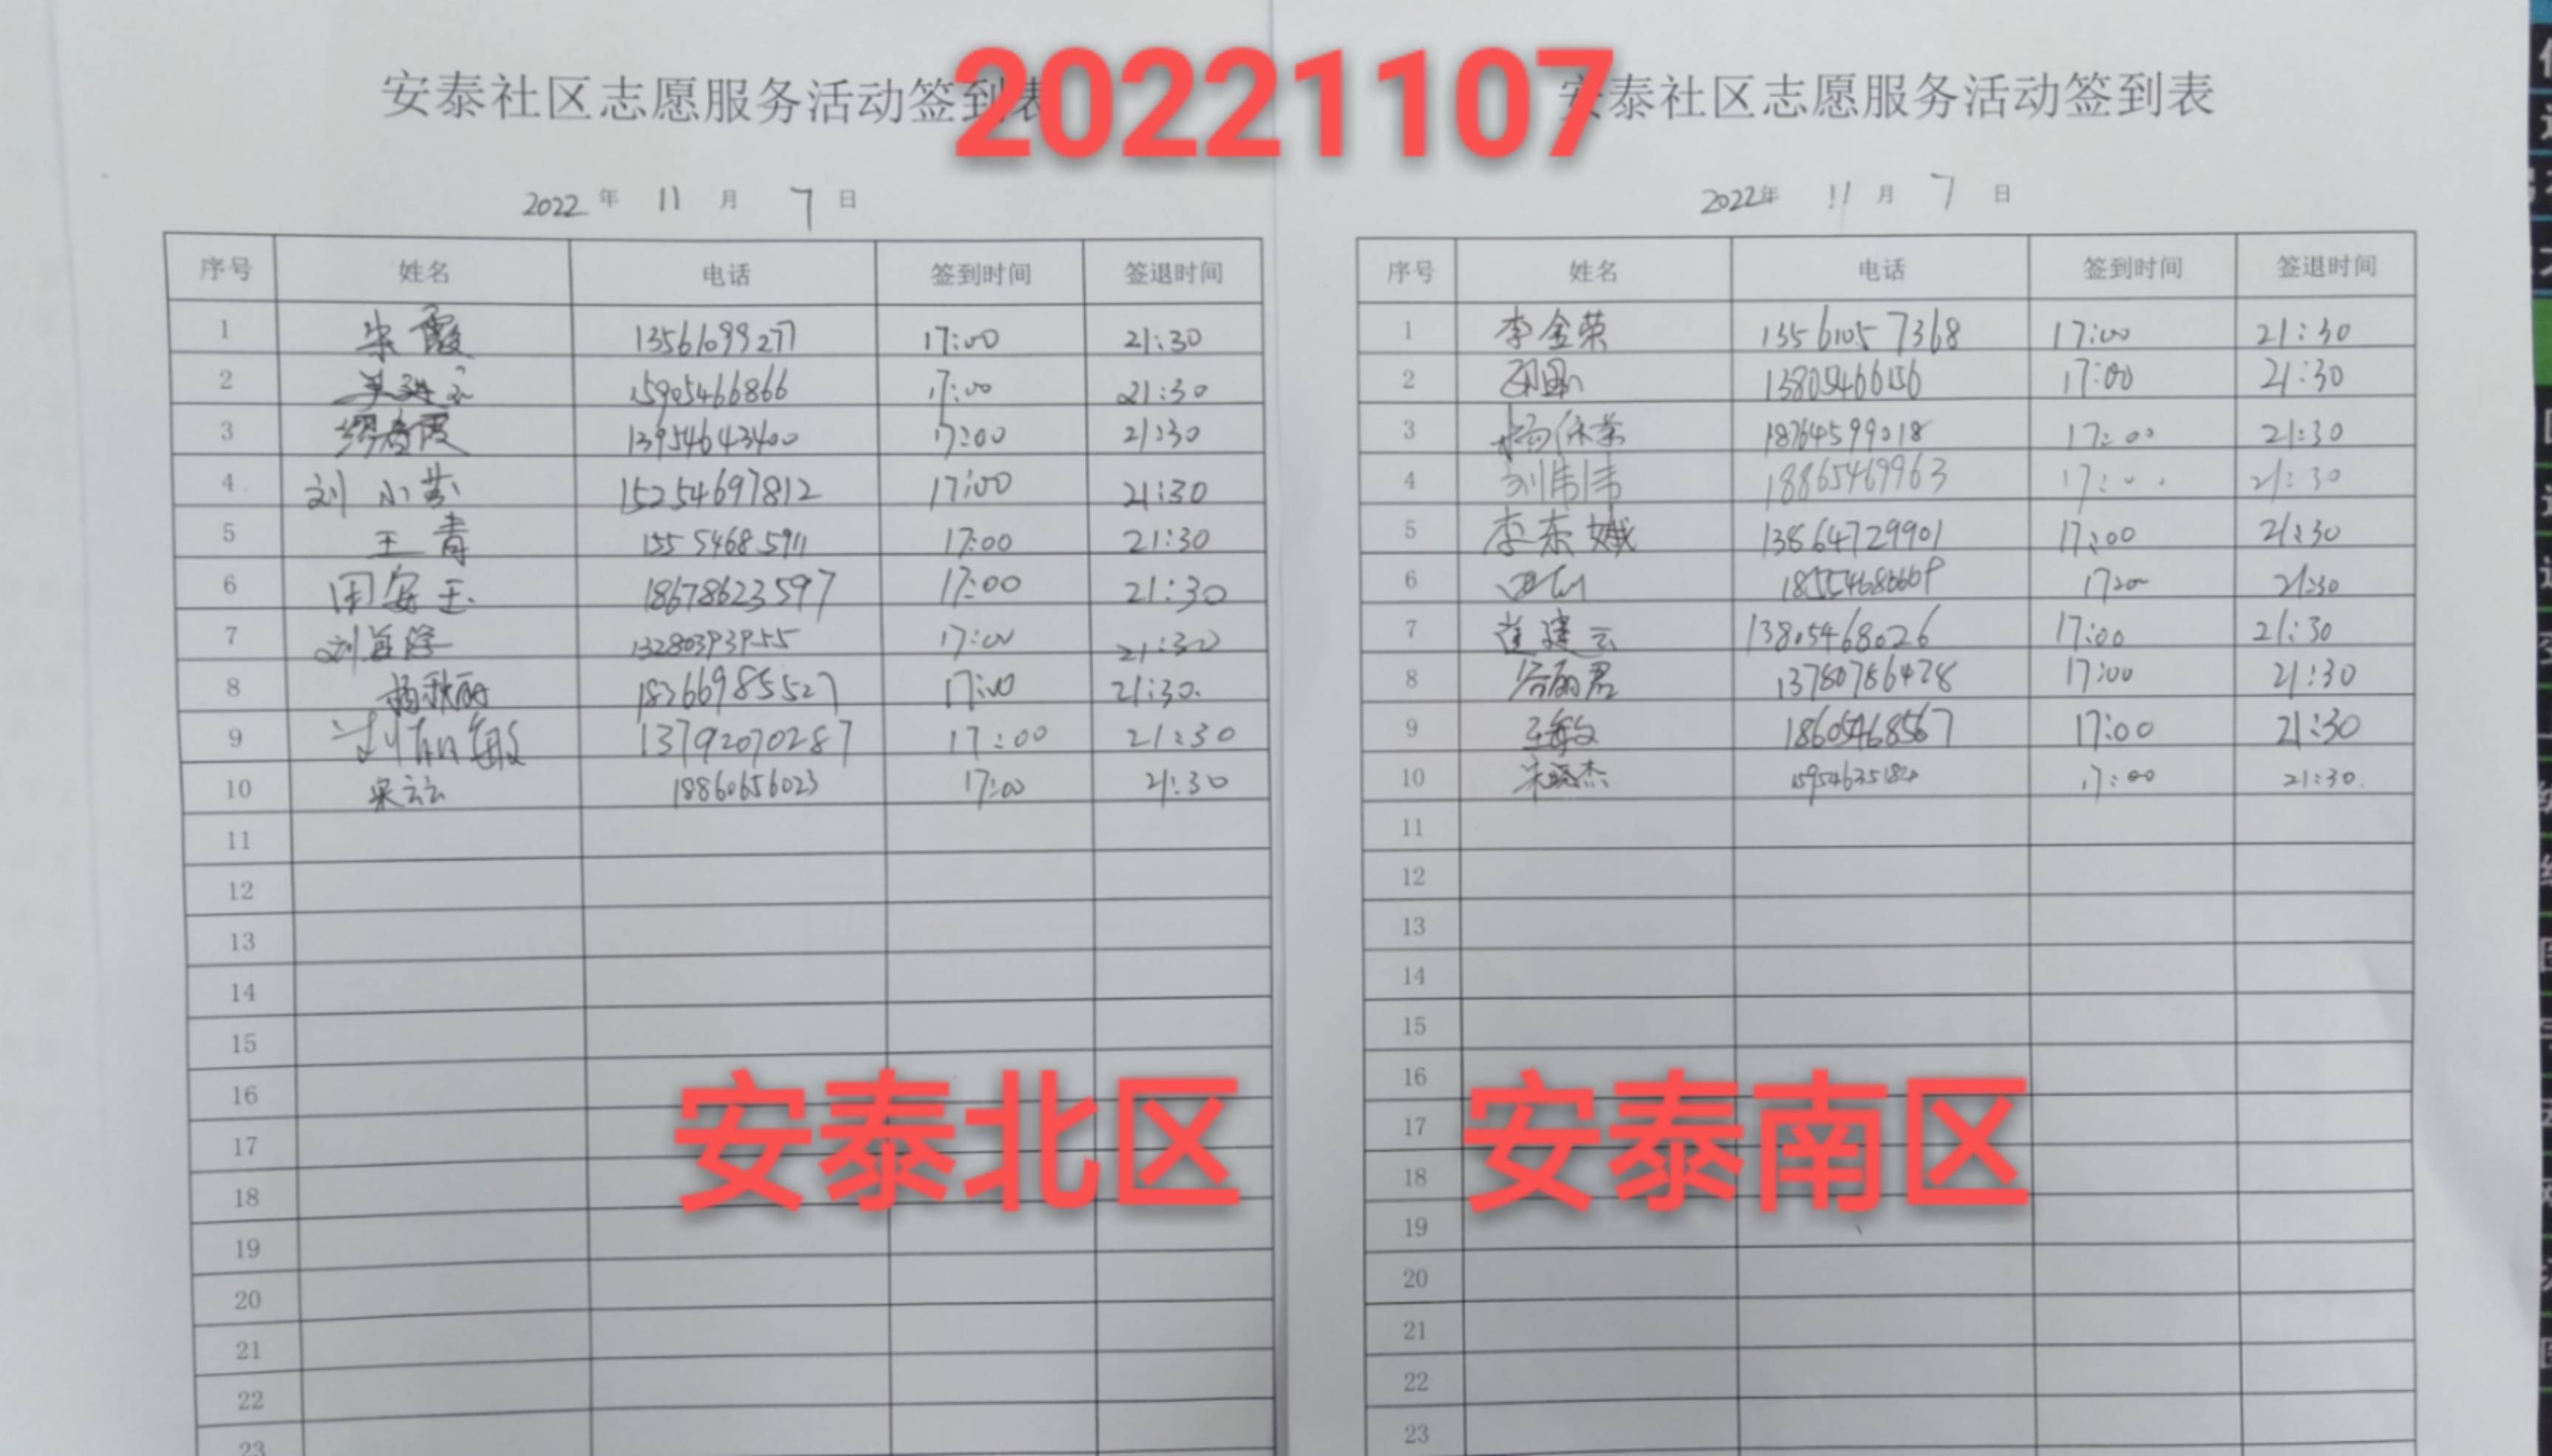 20221107
安泰社区志愿服务活动签到表
2022年 11月 7日
序号 姓名 电话 签到时间 签退时间
1 宋霞 13561099277 17:00 21:30
2 15905466866 17:00 21:30
3 霞 13954643400 17:00 21:30
4 刘小芳 15254697812 17:00 21:30
5 王青 15554685911 17:00 21:30
6 周安玉 18678623597 17:00 21:30
7 刘 13280393955 17:00 21:30
8 杨秋丽 18266985527 17:00 21:30
9 敏 13792070287 17:00 21:30
10 宋云云 18860656023 17:00 21:30
11
12
13
14
15
16
17
18
19
20
21
22
23
安泰北区
安泰社区志愿服务活动签到表
2022年 11月 7日
序号 姓名 电话 签到时间 签退时间
1 李金荣 13561057368 17:00 21:30
2 17:00 21:30
3 杨 18764599018 17:00 21:30
4 刘伟伟 18865469963 17:00 21:30
5 李东娥 13864729901 17:00 21:30
6 17:00 21:30
7 崔建云 13805468026 17:00 21:30
8 谷丽君 13780786428 17:00 21:30
9 王敏 18605468567 17:00 21:30
10 宋晓杰 17:00 21:30
11
12
13
14
15
16
17
18
19
20
21
22
23
安泰南区